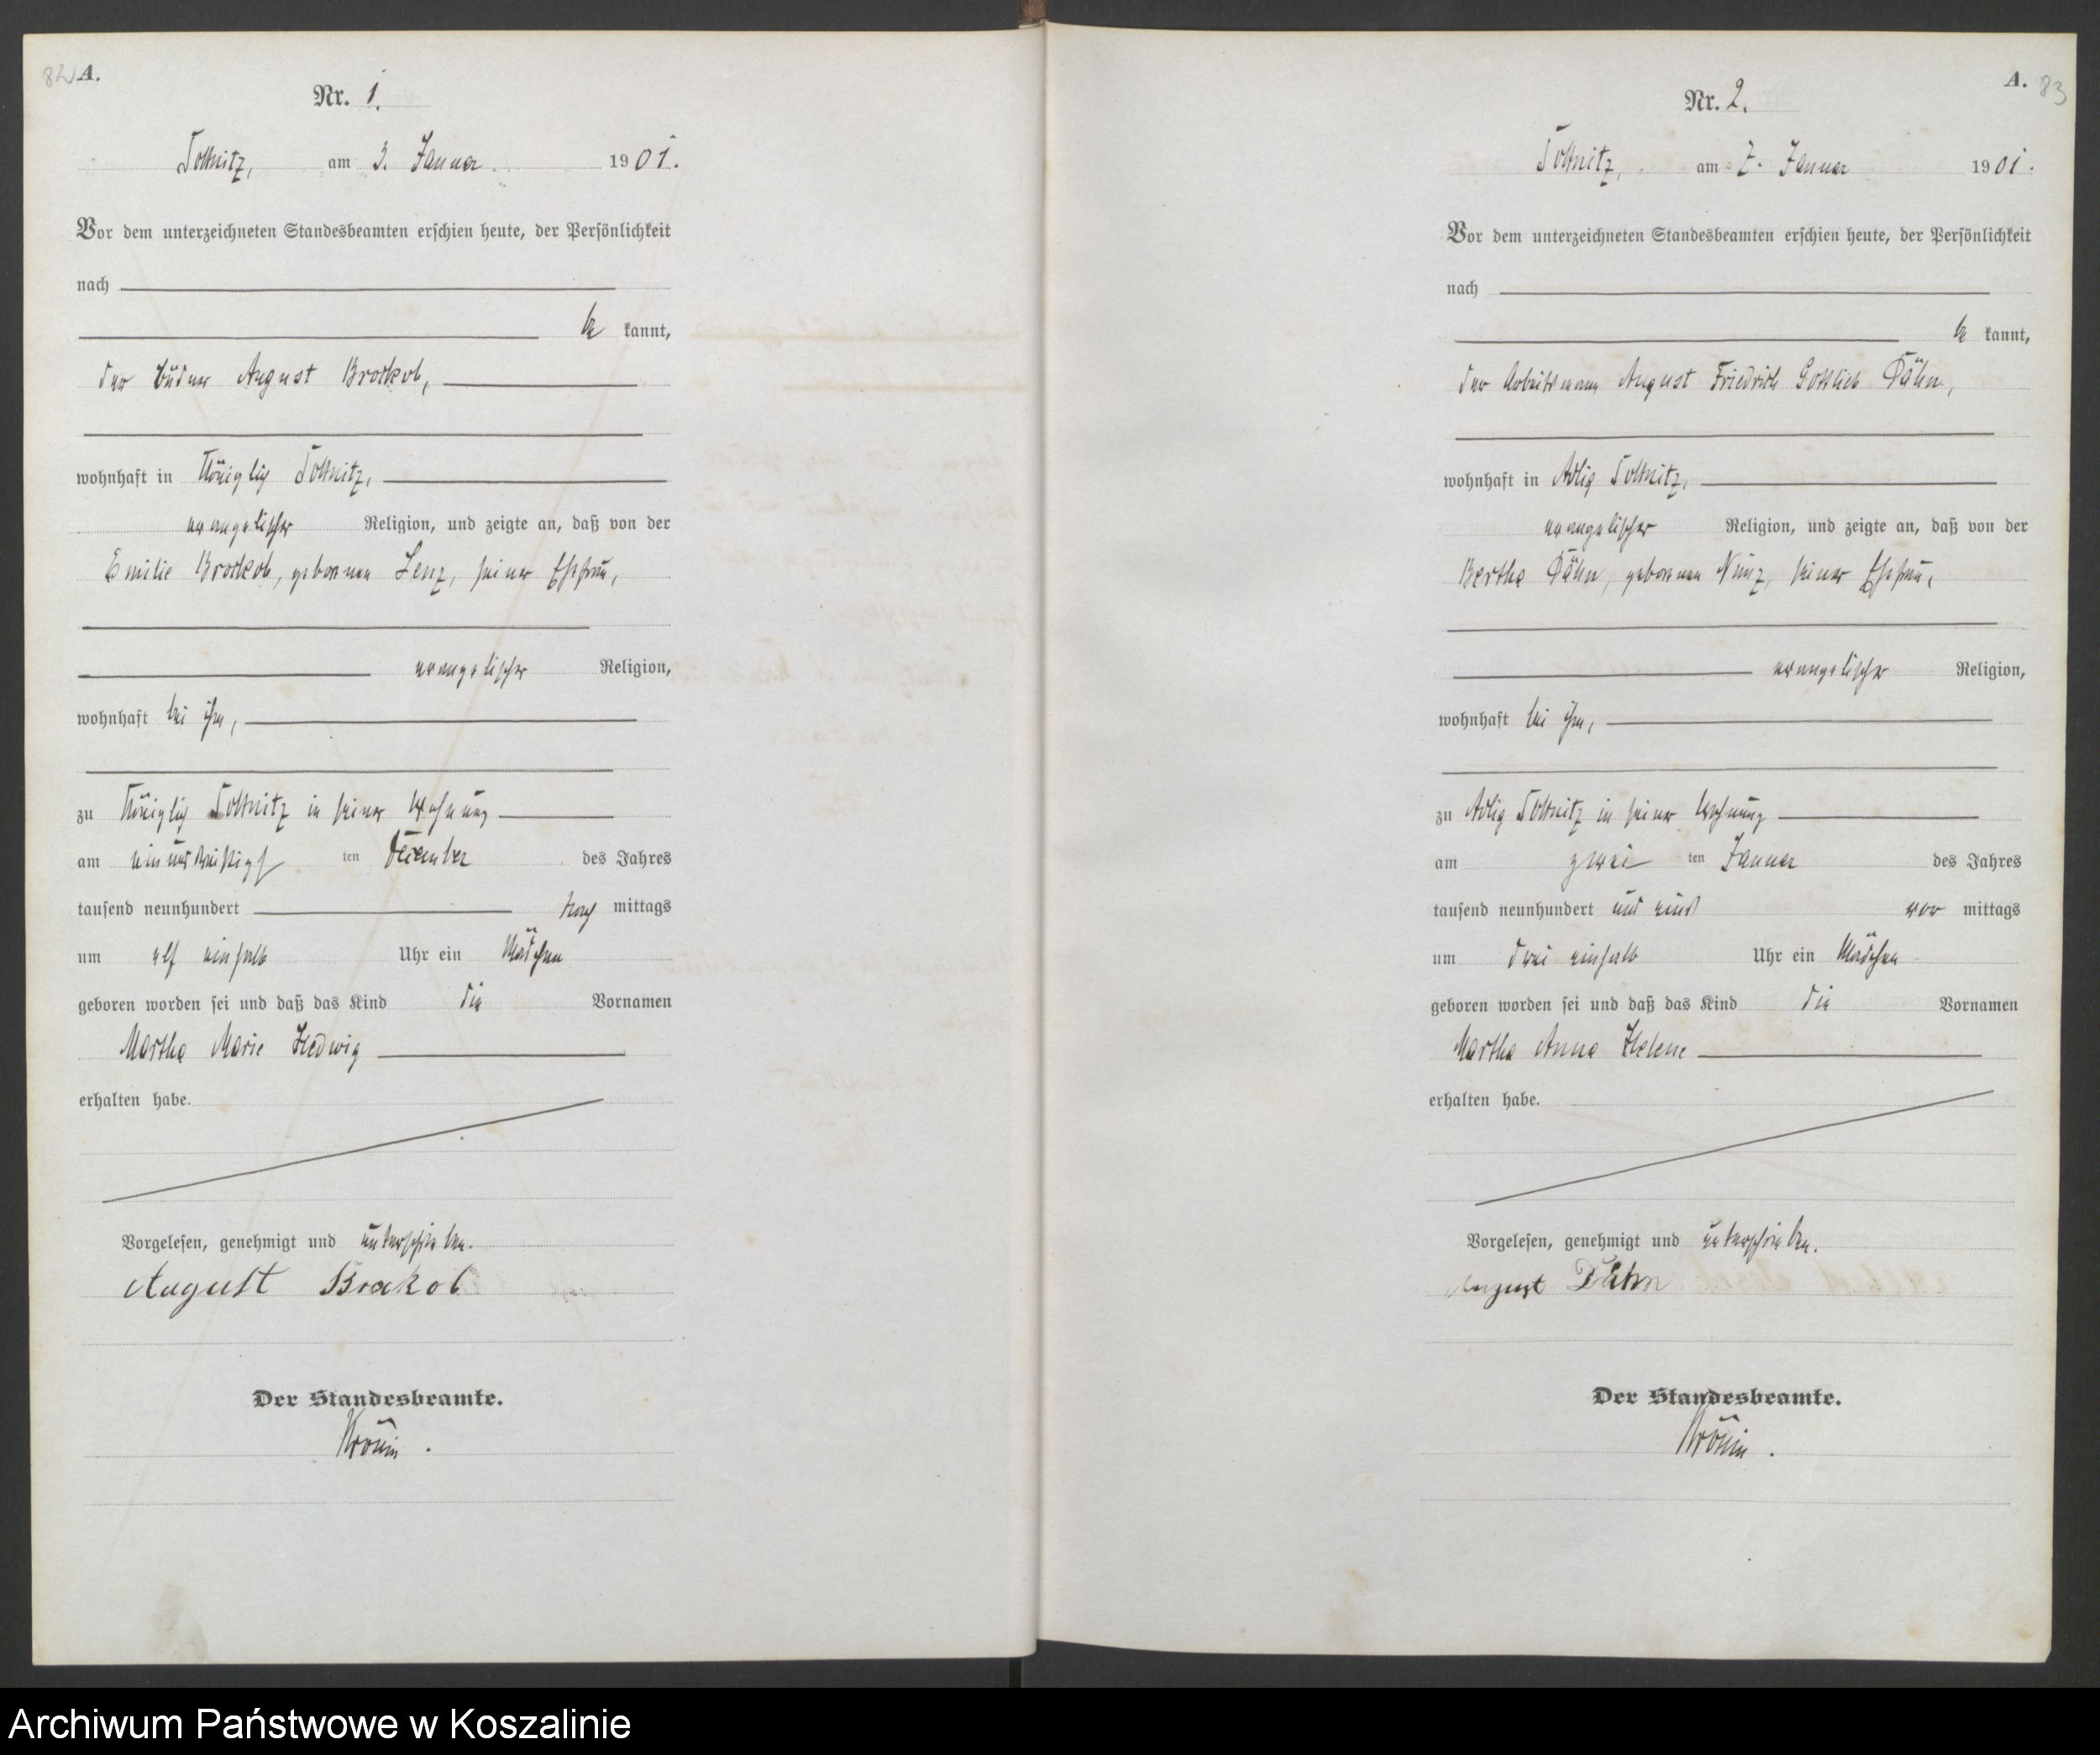 82 A.
Nr. 1.
Soltnitz, am 3. Januar 1901.
Vor dem unterzeichneten Standesbeamten erschien heute, der Persönlichkeit
nach
be kannt,
der Büdner August Brockob,
wohnhaft in Königlich Soltnitz,
evangelischer Religion, und zeigte an, daß von der
Emilie Brockob, geborenen Lenz, seiner Ehefrau,
evangelischer Religion,
wohnhaft bei ihm,
zu Königlich Soltnitz in seiner Wohnung
am einunddreißigs ten Dezember des Jahres
tausend neunhundert Nach mittags
um elf einhalb Uhr ein Mädchen
geboren worden sei und daß das Kind die Vornamen
Martha Marie Hedwig
erhalten habe.
Vorgelesen, genehmigt und unterschrieben.
August Brakob
Der Standesbeamte.
A. 83
Nr. 2.
Soltnitz, am 7. Januar 1901.
Vor dem unterzeichneten Standesbeamten erschien heute, der Persönlichkeit
nach
be kannt,
der Arbeitsmann August Friedrich Gottlieb Dähn,
wohnhaft in Adlig Soltnitz,
evangelischer Religion, und zeigte an, daß von der
Bertha Dähn, geborenen Ninz, seiner Ehefrau,
evangelischer Religion,
wohnhaft bei ihm,
zu Adlig Soltnitz in seiner Wohnung
am zwei ten Januar des Jahres
tausend neunhundert und eins vor mittags
um drei einhalb Uhr ein Mädchen
geboren worden sei und daß das Kind die Vornamen
Martha Anna Helene
erhalten habe.
Vorgelesen, genehmigt und unterschrieben.
August Dähn
Der Standesbeamte.
Archiwum Państwowe w Koszalinie